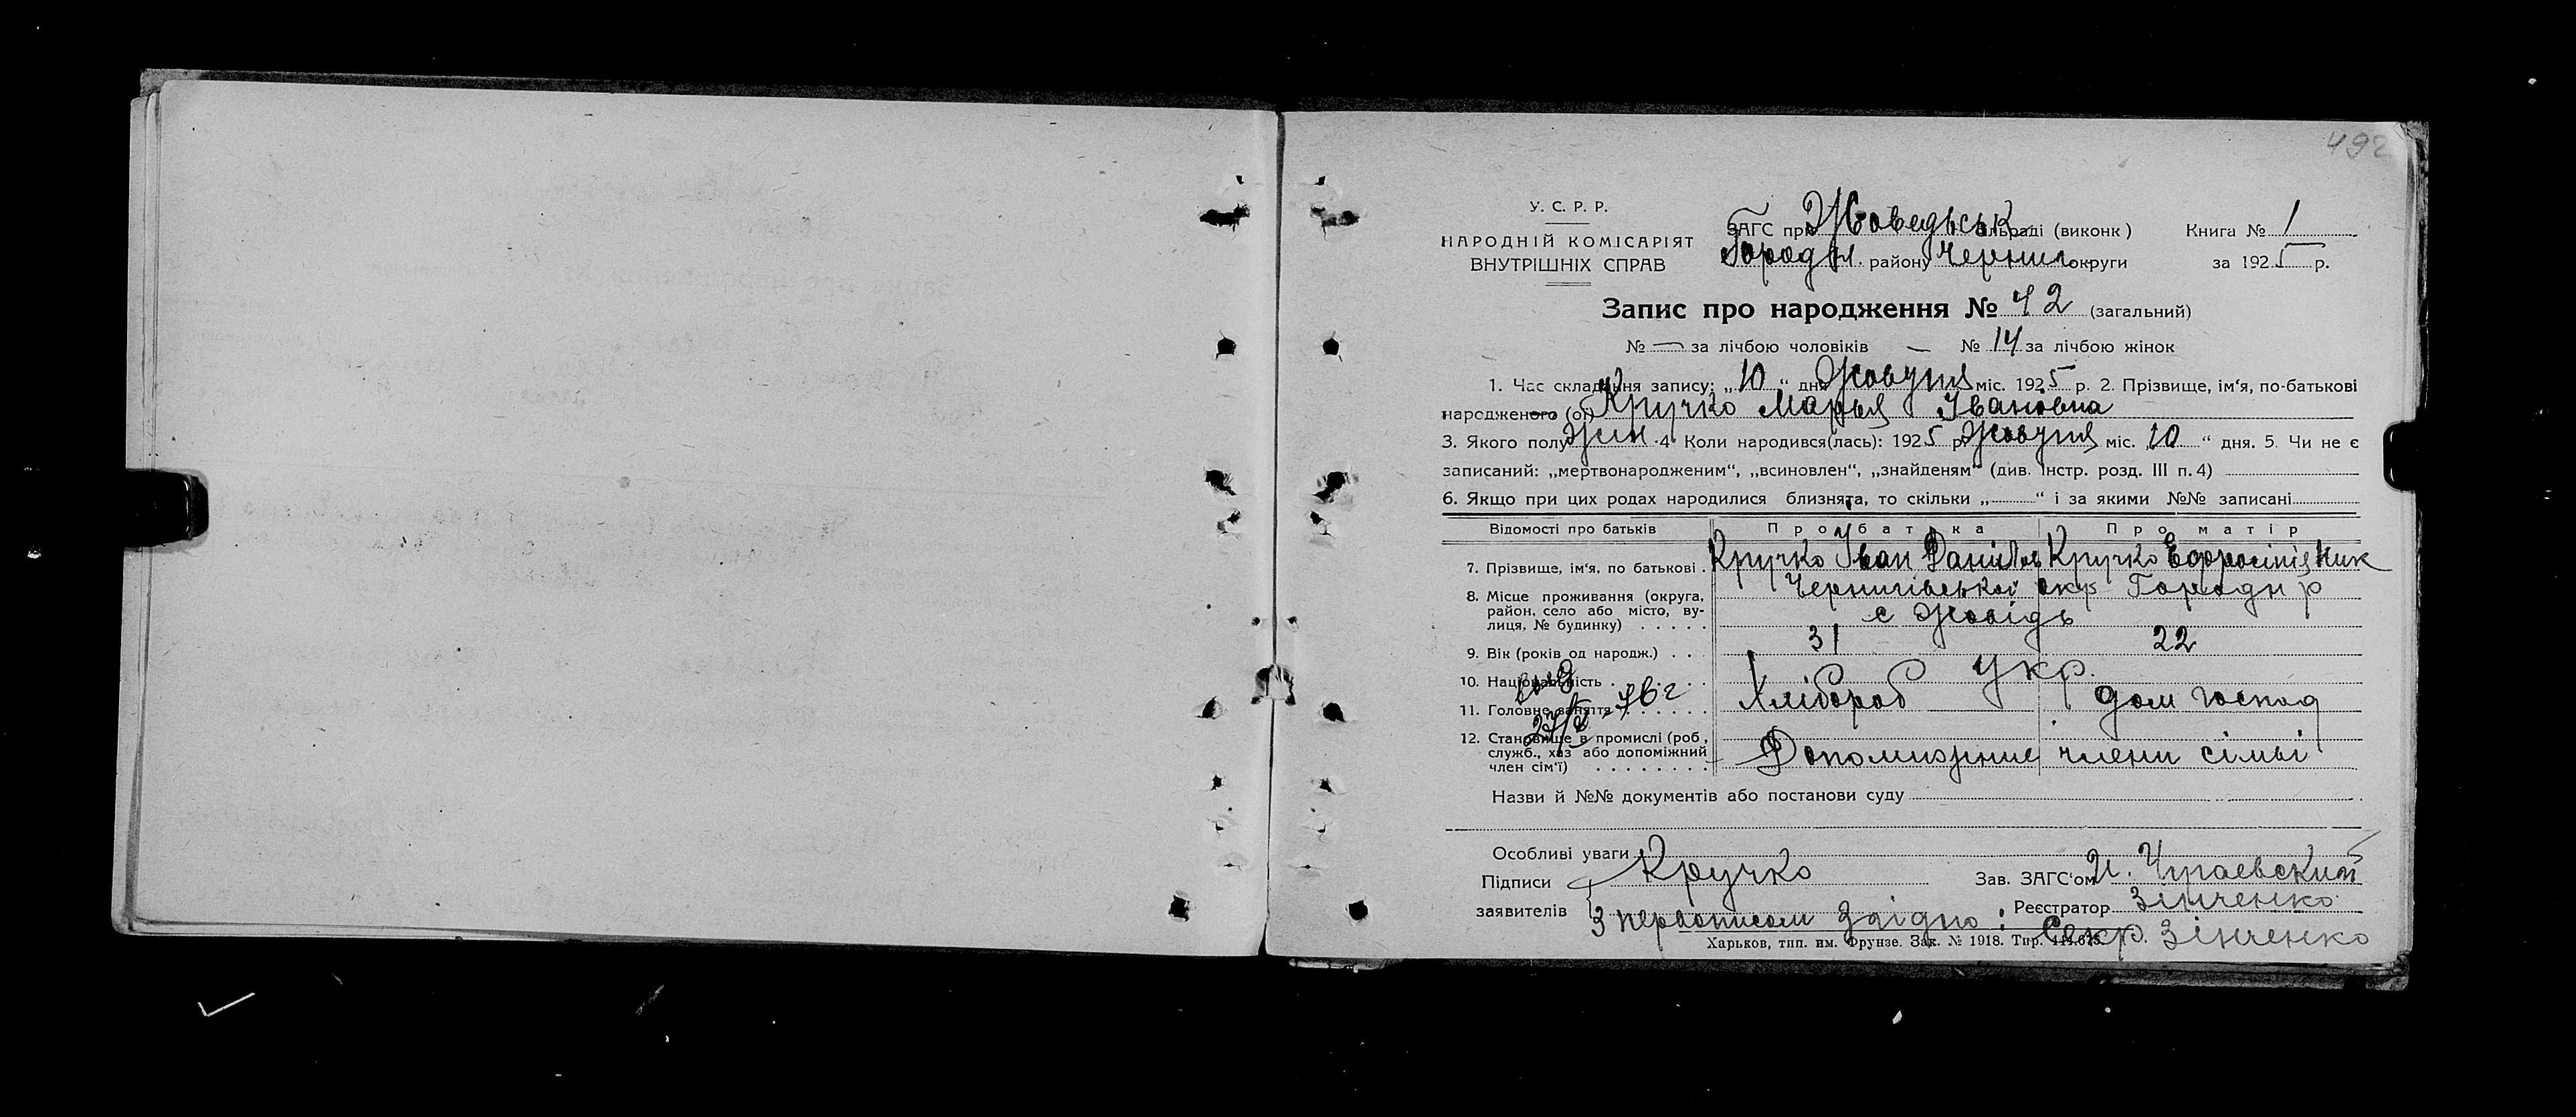 492
У. С. Р. Р.
НАРОДНІЙ КОМІСАРІЯТ
ВНУТРІШНІХ СПРАВ
ЗАГС при Жоведьськ сільраді (виконк)
Город. району Черниг. округи
Книга № 1
за 1925 р.
Запис про народження № 42 (загальний)
№ — за лічбою чоловіків — № 14 за лічбою жінок
1. Час складання запису: „10“ дня Жовтня міс. 1925 р. 2. Прізвище, ім‘я, по-батькові
народженого (ої) Кручко Марья Івановна
3. Якого полу Жін. 4 Коли народився(лась): 1925 р. Жовтня міс. 10 “ дня. 5. Чи не є
записаний: „мертвонародженим“, „всиновлен“, „знайденям“ (див. Інстр. розд. III п. 4)
6. Якщо при цих родах народилися близнята, то скільки „ “ і за якими №№ записані
Відомості про батьків Про батька Про матір
7. Прізвище, ім‘я, по батькові . Кручко Іван Данілов Кручко Ефросінія Ник
8. Місце проживання (округа, район, село або місто, вулиця, № будинку) Чернигівської окр Городн р
с Жовідь
9. Вік (років од народж.) . . 31 22
10. Національність Укр.
11. Головне заняття Хлібороб дом господ
12. Становище в промислі (роб., служб., хаз або допоміжний член сім‘ї) Допоміжние члени сімьі
76 г
Назви й №№ документів або постанови суду
Особливі уваги
Підписи Кручко Зав. ЗАГС‘ом И. Чугаевский
заявителів Реєстратор Зінченко
З первописом Згідно: Секр. Зінченко
Харьков, тип. им. Фрунзе. Зак. № 1918. Тир.